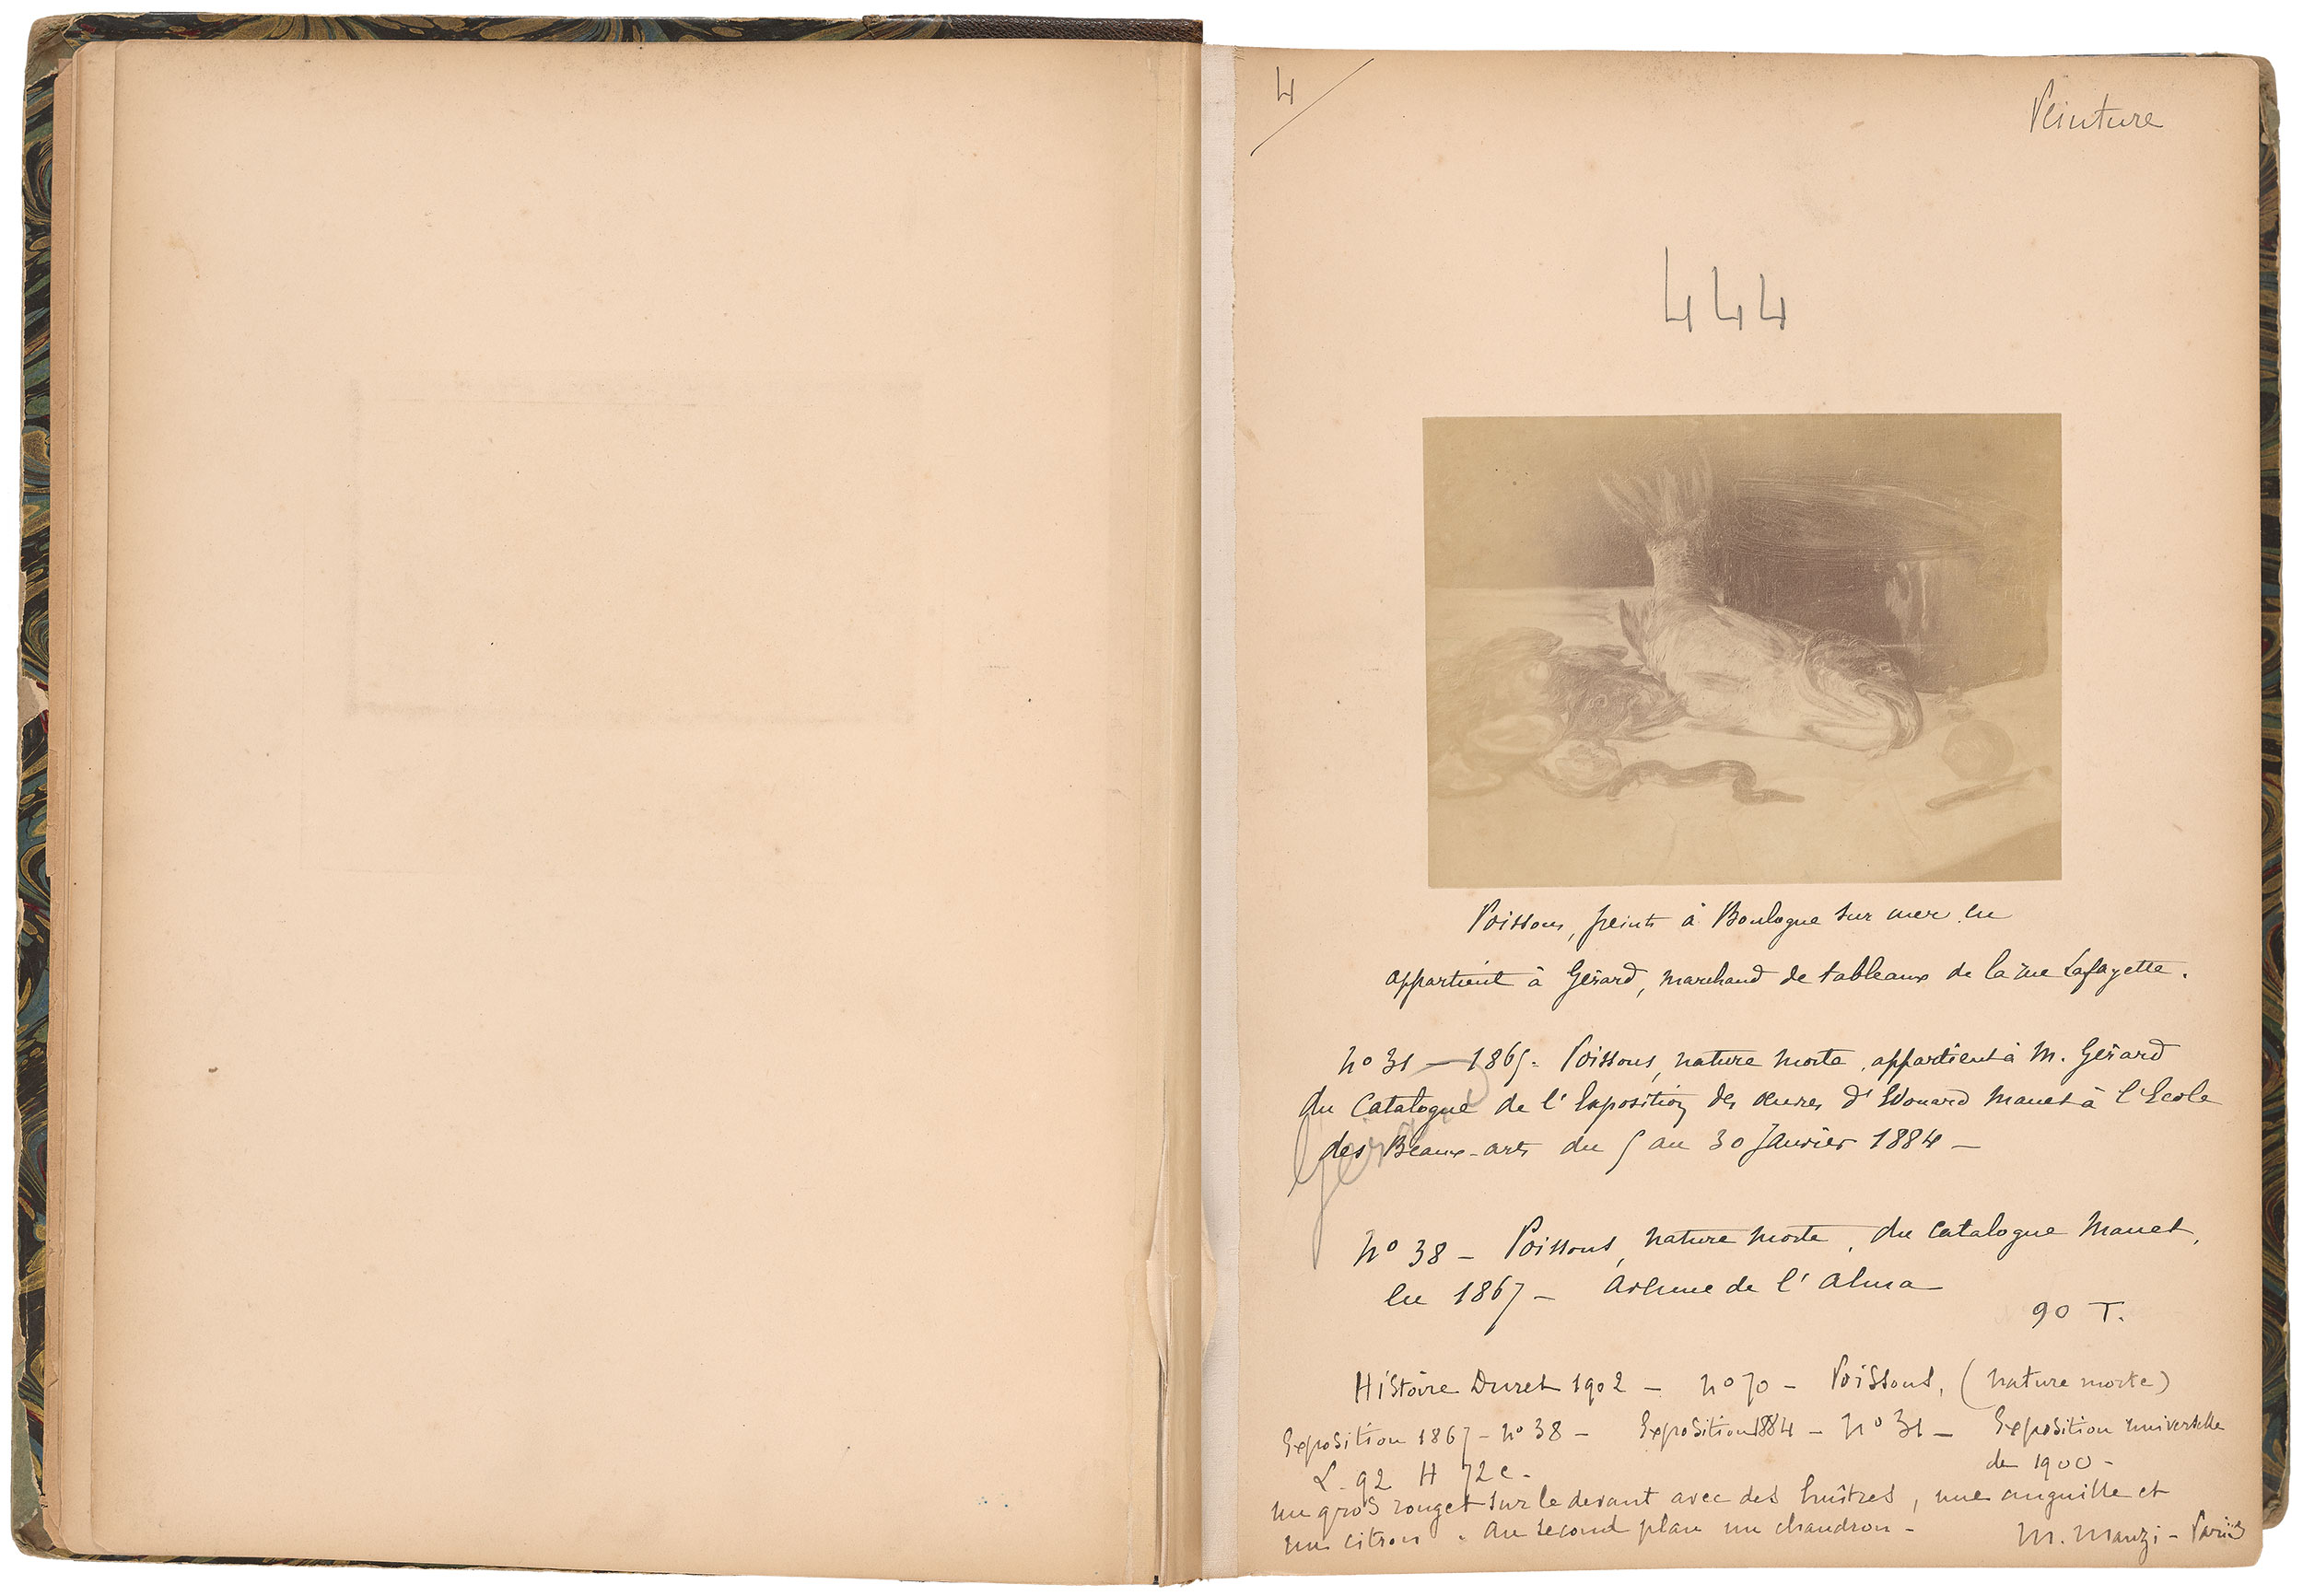 4
Peinture
444
Poissons, peints à Boulogne sur mer en
appartient à Gérard, marchand de tableaux de la rue Lafayette.
no 31 — 1865. Poissons, nature morte, appartient à M. Gérard
du Catalogue de l'Exposition des œuvres d'Edouard Manet à l'Ecole
des Beaux-arts du 5 au 30 Janvier 1884 —
Gérard
No 38 — Poissons, nature morte, du catalogue Manet,
en 1867 — Avenue de l'Alma
90 T.
Histoire Duret 1902 — no 70 — Poissons, (nature morte)
Exposition 1867 — no 38 — Exposition 1884 — No 31 — Exposition universelle
de 1900 —
L. 92 H 72 c.
un gros rouget sur le devant avec des huîtres, une anguille et
un citron. au second plan un chaudron —
M. Manzi — Paris